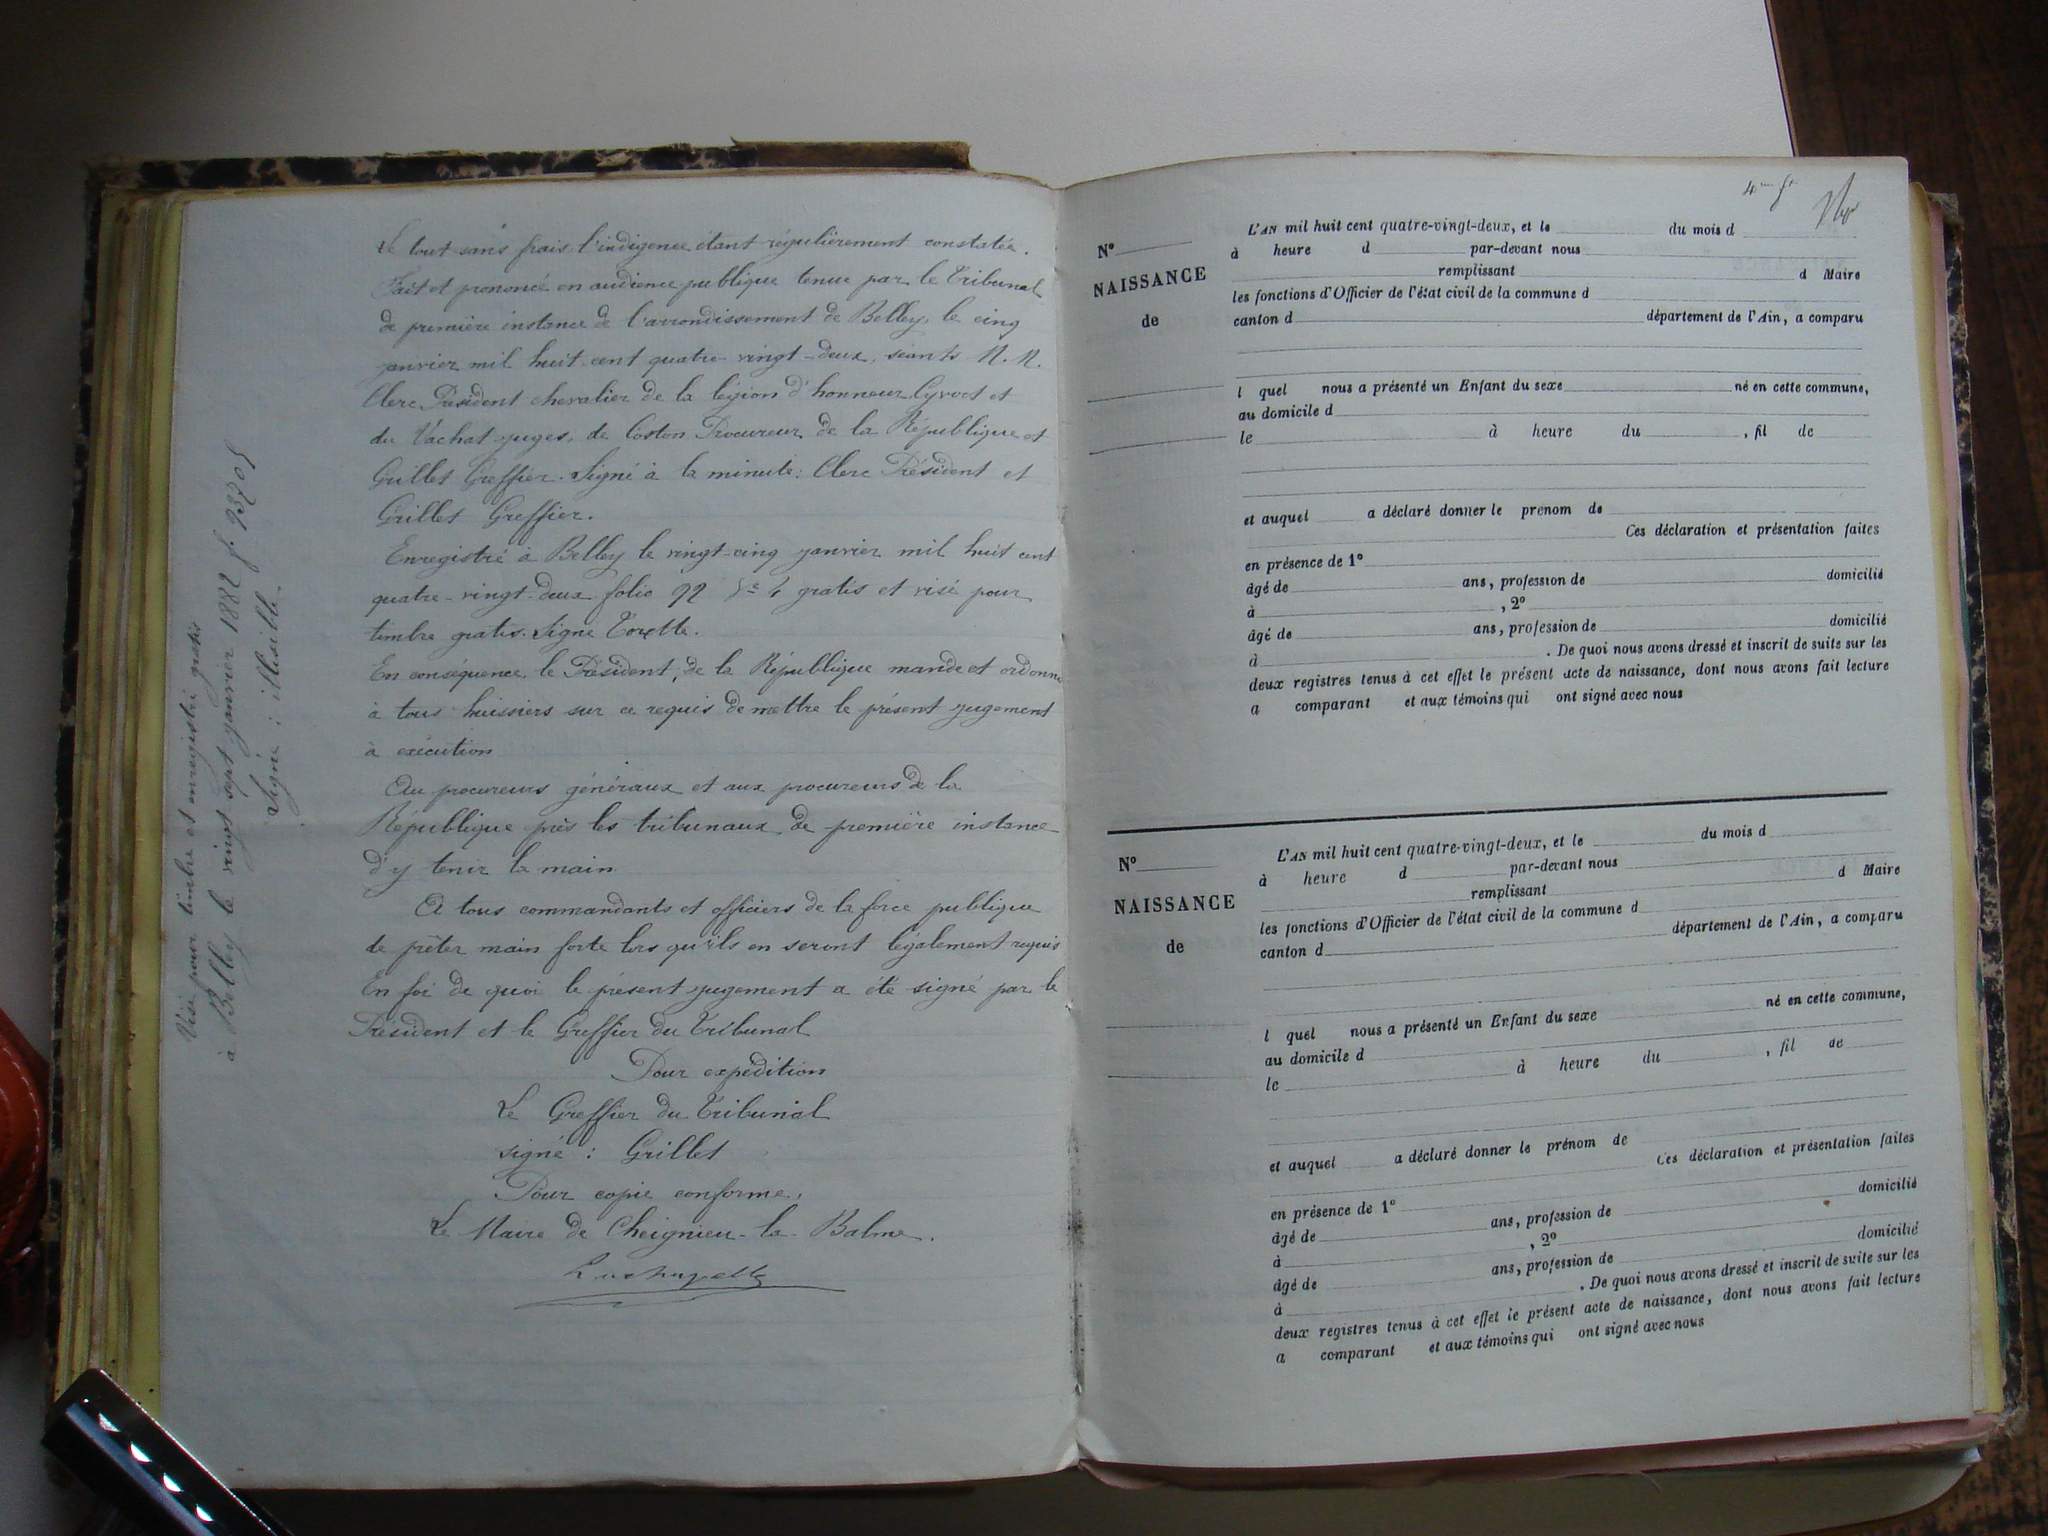 Le tout sans frais l'indigence étant régulièrement constatée.
Fait et prononcé en audience publique tenue par le Tribunal
de première instance de l'arrondissement de Belley, le cinq
janvier mil huit cent quatre-vingt-deux, séants M.M.
Clerc, Président chevalier de la légion d'honneur, Cyvoct et
du Vachat juges, de Coston Procureur de la République et
Grillet Greffier. Signé à la minute: Clerc Président et
Grillet Greffier.
Enregistré à Belley le vingt-cinq janvier mil huit cent
quatre-vingt-deux folio 92 4 gratis et visé pour
timbre gratis. Signé
En conséquence, le Président, de la République mande et ordonne
à tous huissiers sur ce requis de mettre le présent jugement
à exécution
Au procureurs généraux et aux procureurs de la
République près les tribunaux de première instance
d'y tenir la main
A tous commandants et officiers de la force publique
de prêter main forte lors qu'ils en seront légalement requis
En foi de quoi le présent jugement a été signé par le
Président et le Greffier du Tribunal
Pour expédition
Le Greffier du Tribunal
signé : Grillet
Pour copie conforme,
Le Maire de Cheignieu-la-Balme.
Lachapelle
Visé pour timbre et enregistré gratis
à Belley le vingt sept janvier 1882 f.
Signé : illisible.
4
L'AN mil huit cent quatre-vingt-deux, et le du mois d
N° à heure d par-devant nous
remplissant d Maire
NAISSANCE les fonctions d'Officier de l'état civil de la commune d
de canton d département de l'Ain, a comparu
l quel nous a présenté un Enfant du sexe né en cette commune,
au domicile d
le à heure du , fil de
et auquel a déclaré donner le prénom de
Ces déclaration et présentation faites
en présence de 1°
âgé de ans, profession de domicilié
à , 2°
âgé de ans, profession de domicilié
à . De quoi nous avons dressé et inscrit de suite sur les
deux registres tenus à cet effet le présent acte de naissance, dont nous avons fait lecture
a comparant et aux témoins qui ont signé avec nous
L'AN mil huit cent quatre-vingt-deux, et le du mois d
N° à heure d par-devant nous
remplissant d Maire
NAISSANCE les fonctions d'Officier de l'état civil de la commune d
de canton d département de l'Ain, a comparu
l quel nous a présenté un Enfant du sexe né en cette commune,
au domicile d
le à heure du , fil de
et auquel a déclaré donner le prénom de
Ces déclaration et présentation faites
en présence de 1°
âgé de ans, profession de domicilié
à , 2°
âgé de ans, profession de domicilié
à . De quoi nous avons dressé et inscrit de suite sur les
deux registres tenus à cet effet le présent acte de naissance, dont nous avons fait lecture
a comparant et aux témoins qui ont signé avec nous